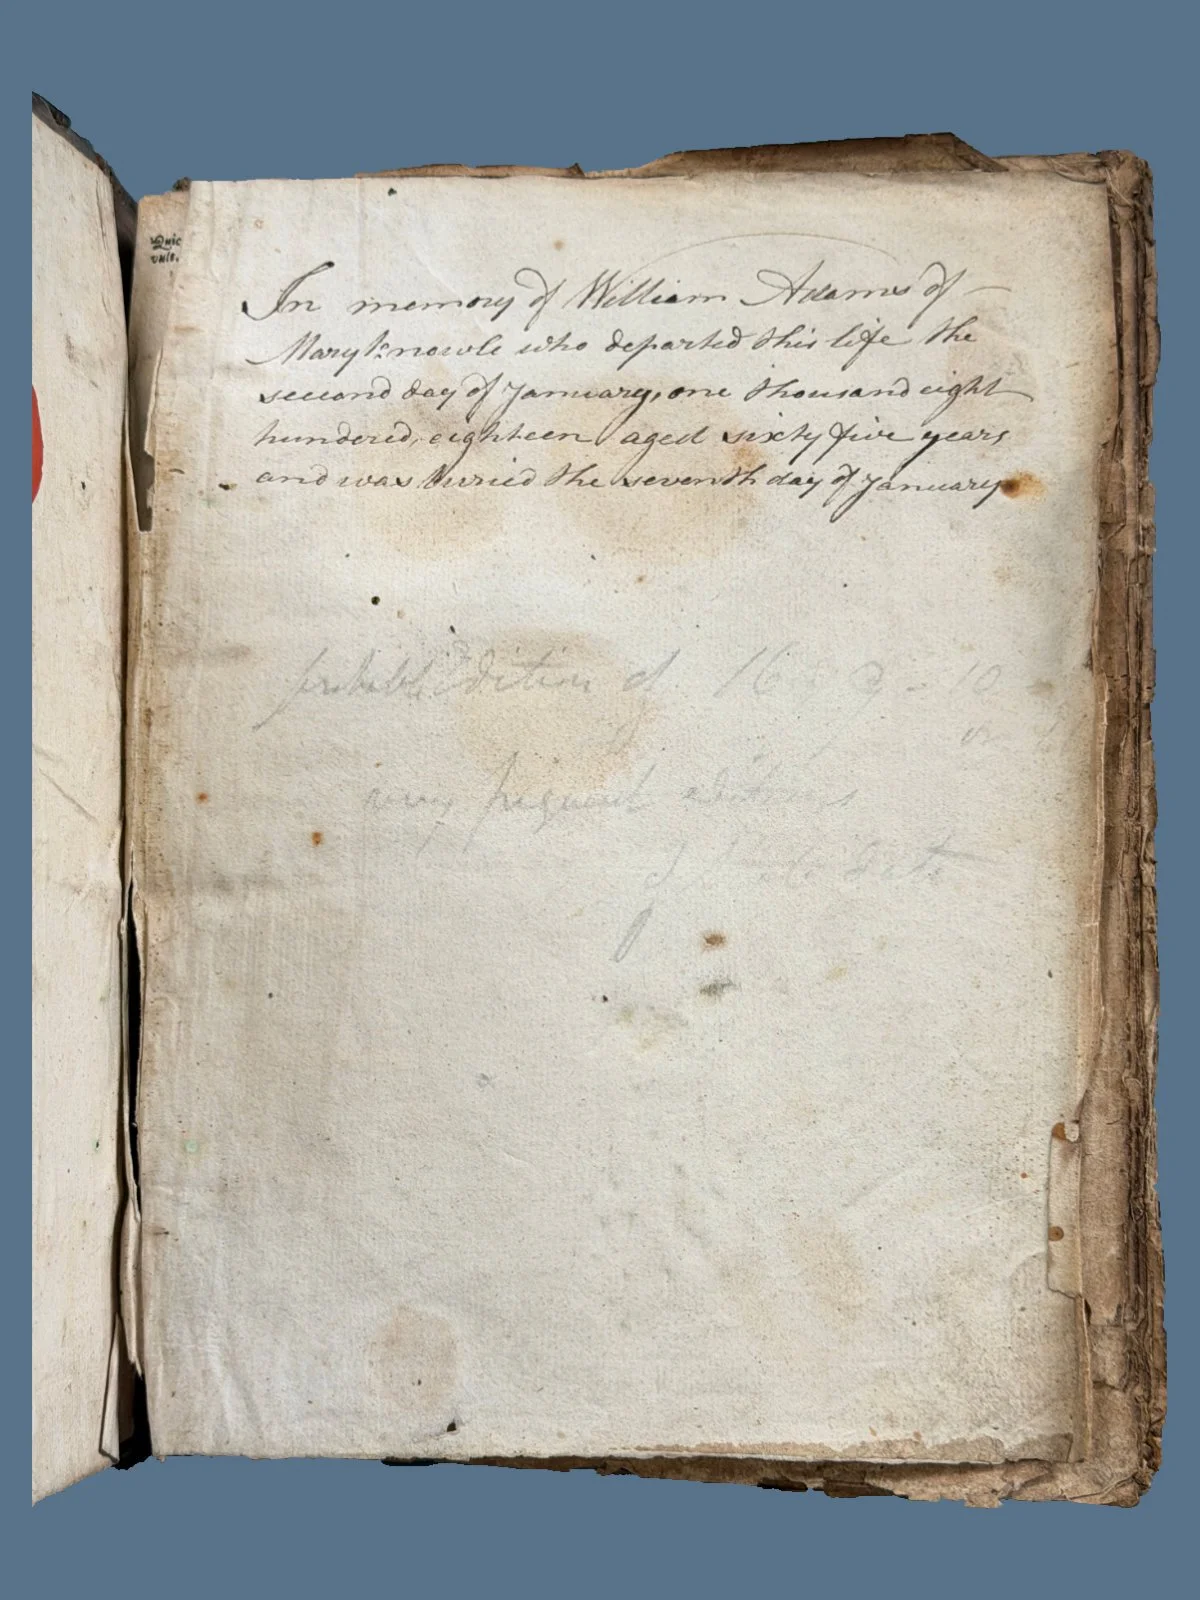 Quic
vult.
In memory of William Adams of
Maryknowle who departed this life the
second day of January, one thousand eight
hundered, eighteen aged sixty five years
and was buried the seventh day of January
probable Edition of 16 9 - 10
or
very frequent editions
of date